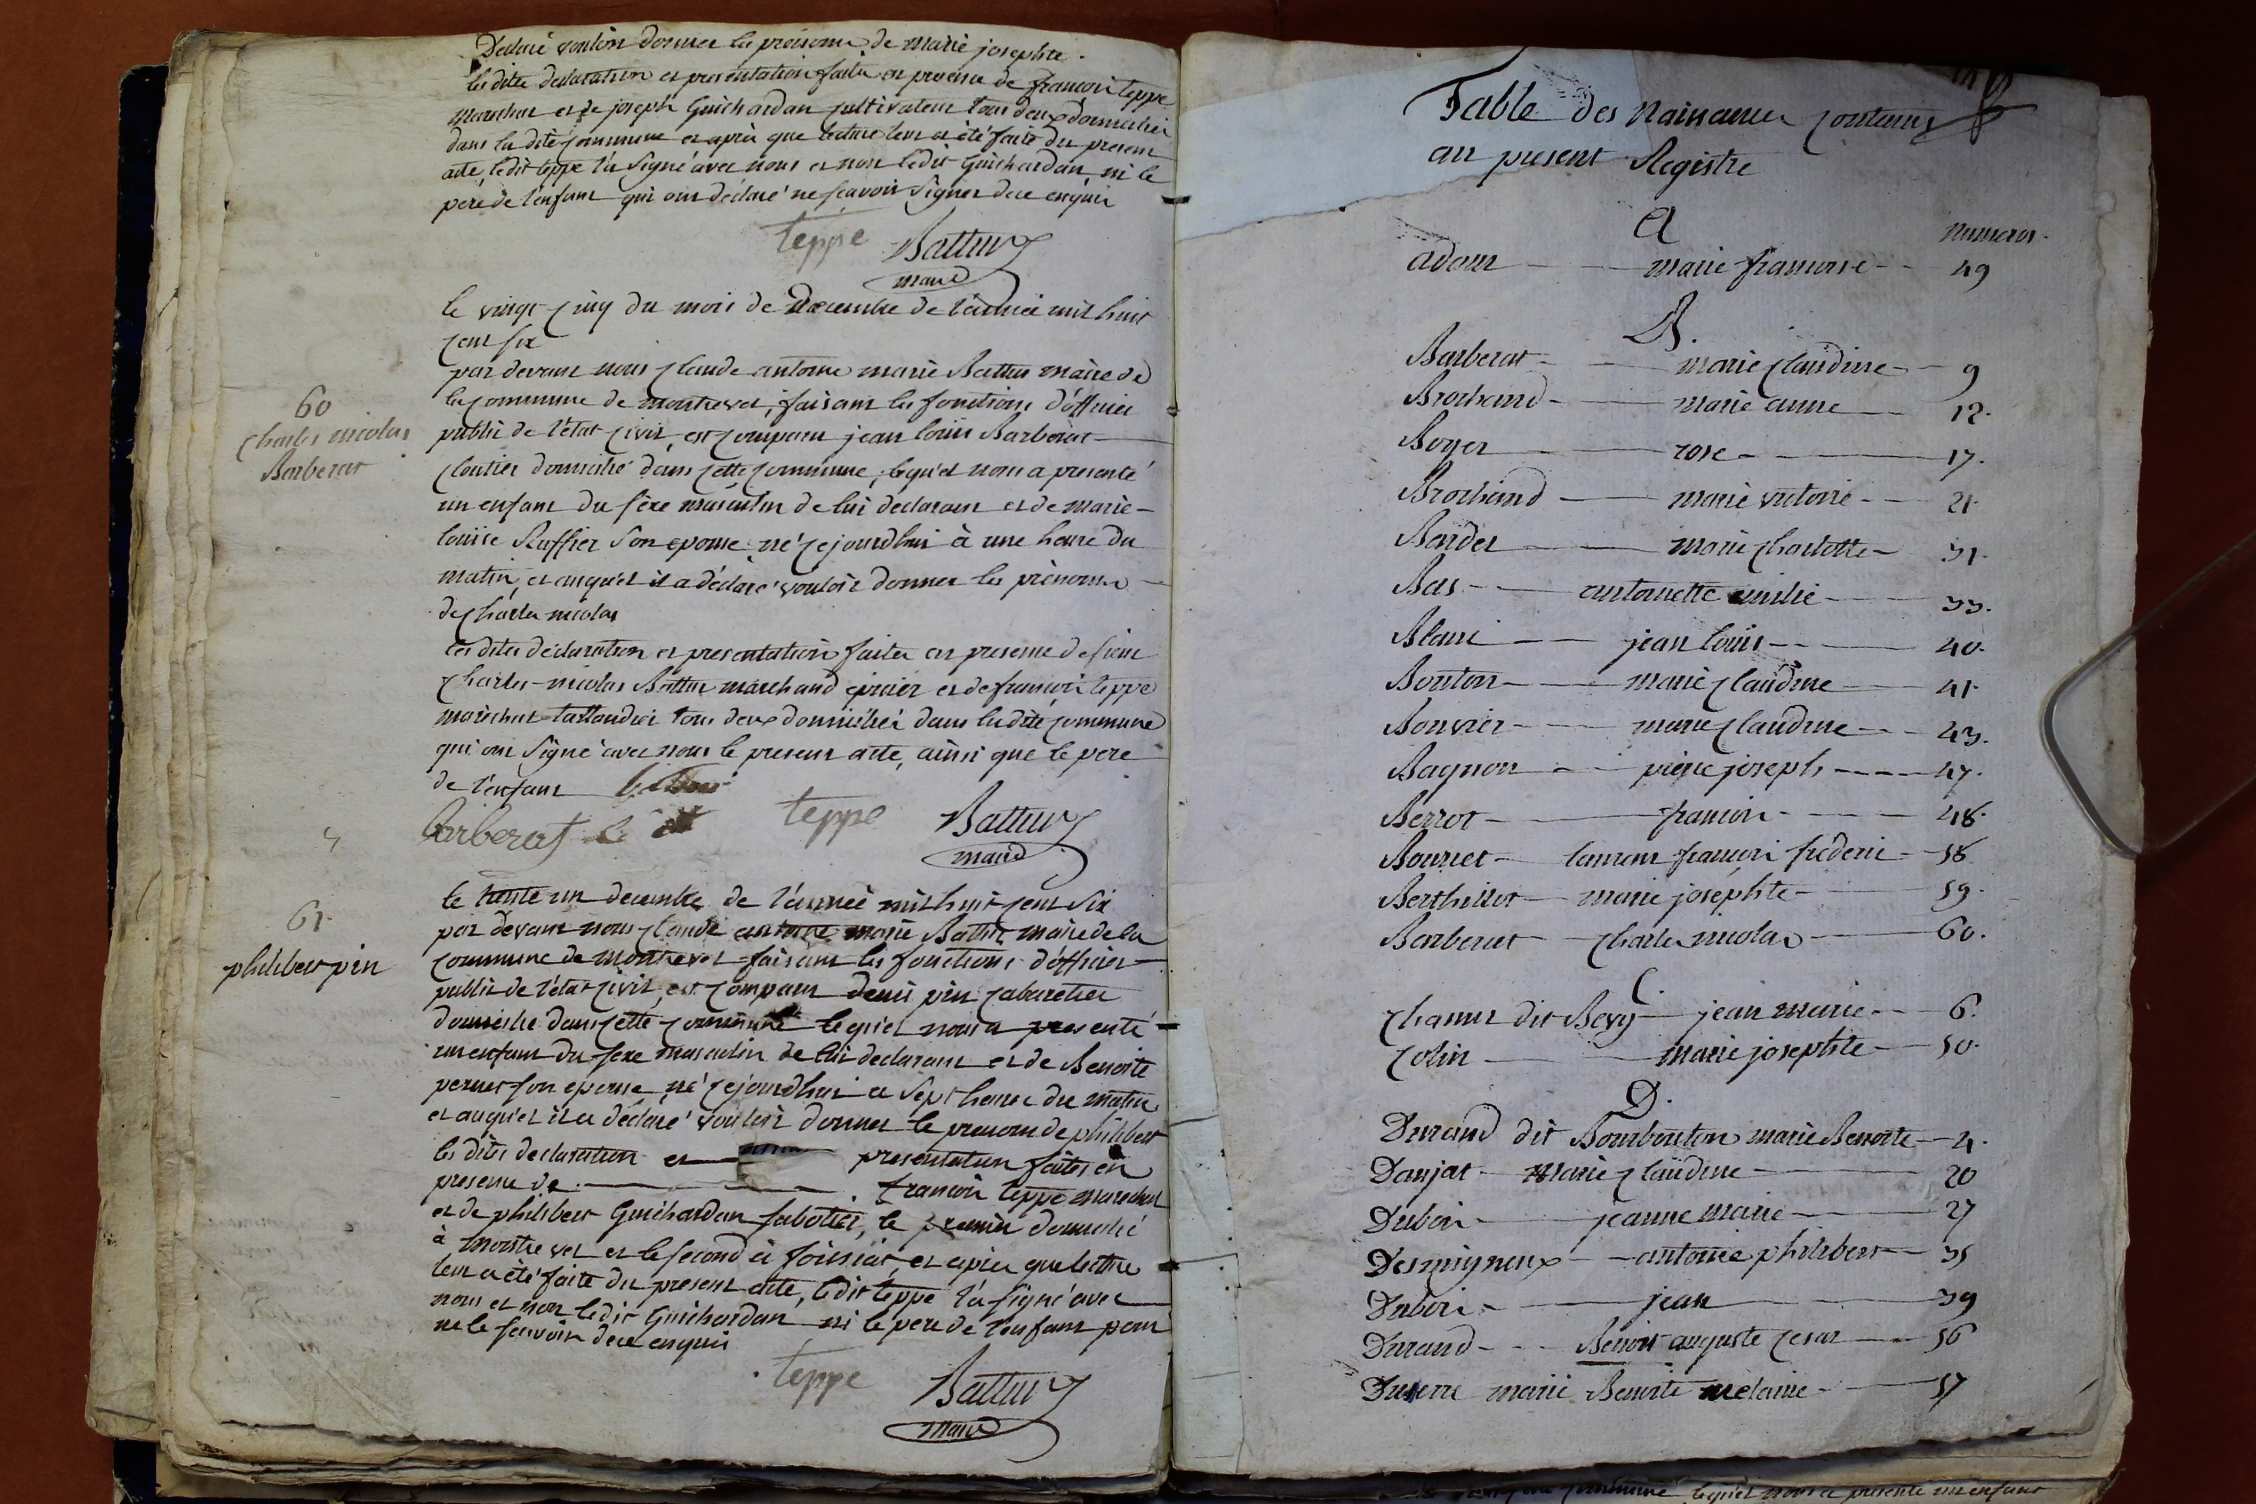 Declaré vouloir donner les prenoms de marie josephte.
les dites declaration et presentation faites en presence de francois teppe
marechal et de joseph Guichardan cultivateur tous deux domiciliés
dans la dite commune et après que lecture leur a été faite du present
acte, ledit teppe l'a signé avec nous et non ledit Guichardan, ni le
pere de l'enfant qui ont déclaré ne sçavoir signer de ce enquis
teppe Battur
maire
le vingt cinq du mois de Decembre de l'année mil huit
cent six
par devant nous Claude antoine marie Battur maire de
la commune de montrevel, faisant les fonctions d'officier
60
public de l'état civil, est comparu jean louis Barberat
Charles nicolas
Barberat
cloutier domicilié dans cette commune, lequel nous a presenté
un enfant du sexe masculin de lui declarant et de marie
louise Ruffier son epouse né cejourdhui à une heure du
matin, et auquel il a déclaré vouloir donner les prénoms
de Charles nicolas
les dites declaration et presentation faites en presence de sieur
Charles-nicolas Battur marchand epicier et de francois teppe
maréchal taillandier tous deux domiciliés dans la dite commune
qui ont signé avec nous le present acte, ainsi que le pere
de l'enfant
Barberat teppe Battur
maire
61
le trente un decembre de l'année mil huit cent six
par devant nous Claude antoine marie Battur maire de la
philibert pin
commune de montrevel faisant les fonctions d'officier
public de l'état civil, est comparu denis pin cabaretier
domicilié dans cette commune lequel nous a presenté
un enfant du sexe masculin de lui declarant et de Benoite
pernet son epouse, né cejourdhui a sept heures du matin
et auquel il a déclaré vouloir donner le prenom de philibert
les dites declaration et presentation faites en
presence de francois teppe marechal
et de philibert Guichardan sabotier, le premier domicilié
à montrevel et le second à foissiat, et après que lecture
leur a été faite du present acte, ledit teppe l'a signé avec
nous et non ledit Guichardan ni le pere de l'enfant pour
ne le sçavoir de ce enquis
teppe Battur
maire
Table des Naissances contenues
au present Registre
A
Numeros
adam marie francoise 49
B.
Barberat marie claudine 9
Brochand marie anne 12.
Boyer rose 17.
Brochand marie victoire 21.
Bordet marie charlotte 31.
Bas antoinette emilie 33.
Blanc jean louis 40.
Bouton marie claudine 41.
Bouvier marie claudine 43.
Bagnon pierre joseph 47.
Berrot francois 48.
Bourcet laurent francois frederic 58
Berthillot marie josephte 59.
Barberat Charles nicolas 60.
C.
Chanut dit Bevy jean marie 6.
Colin marie josephte 50.
D.
Durand dit Bourbouton marie Benoite 4.
Danjat marie claudine 20
Dubois jeanne marie 27
Desmigneux antoine philibert 35
Dubois jean 39
Durand Benoit auguste cesar 56
Duserre marie Benoite melanie 57